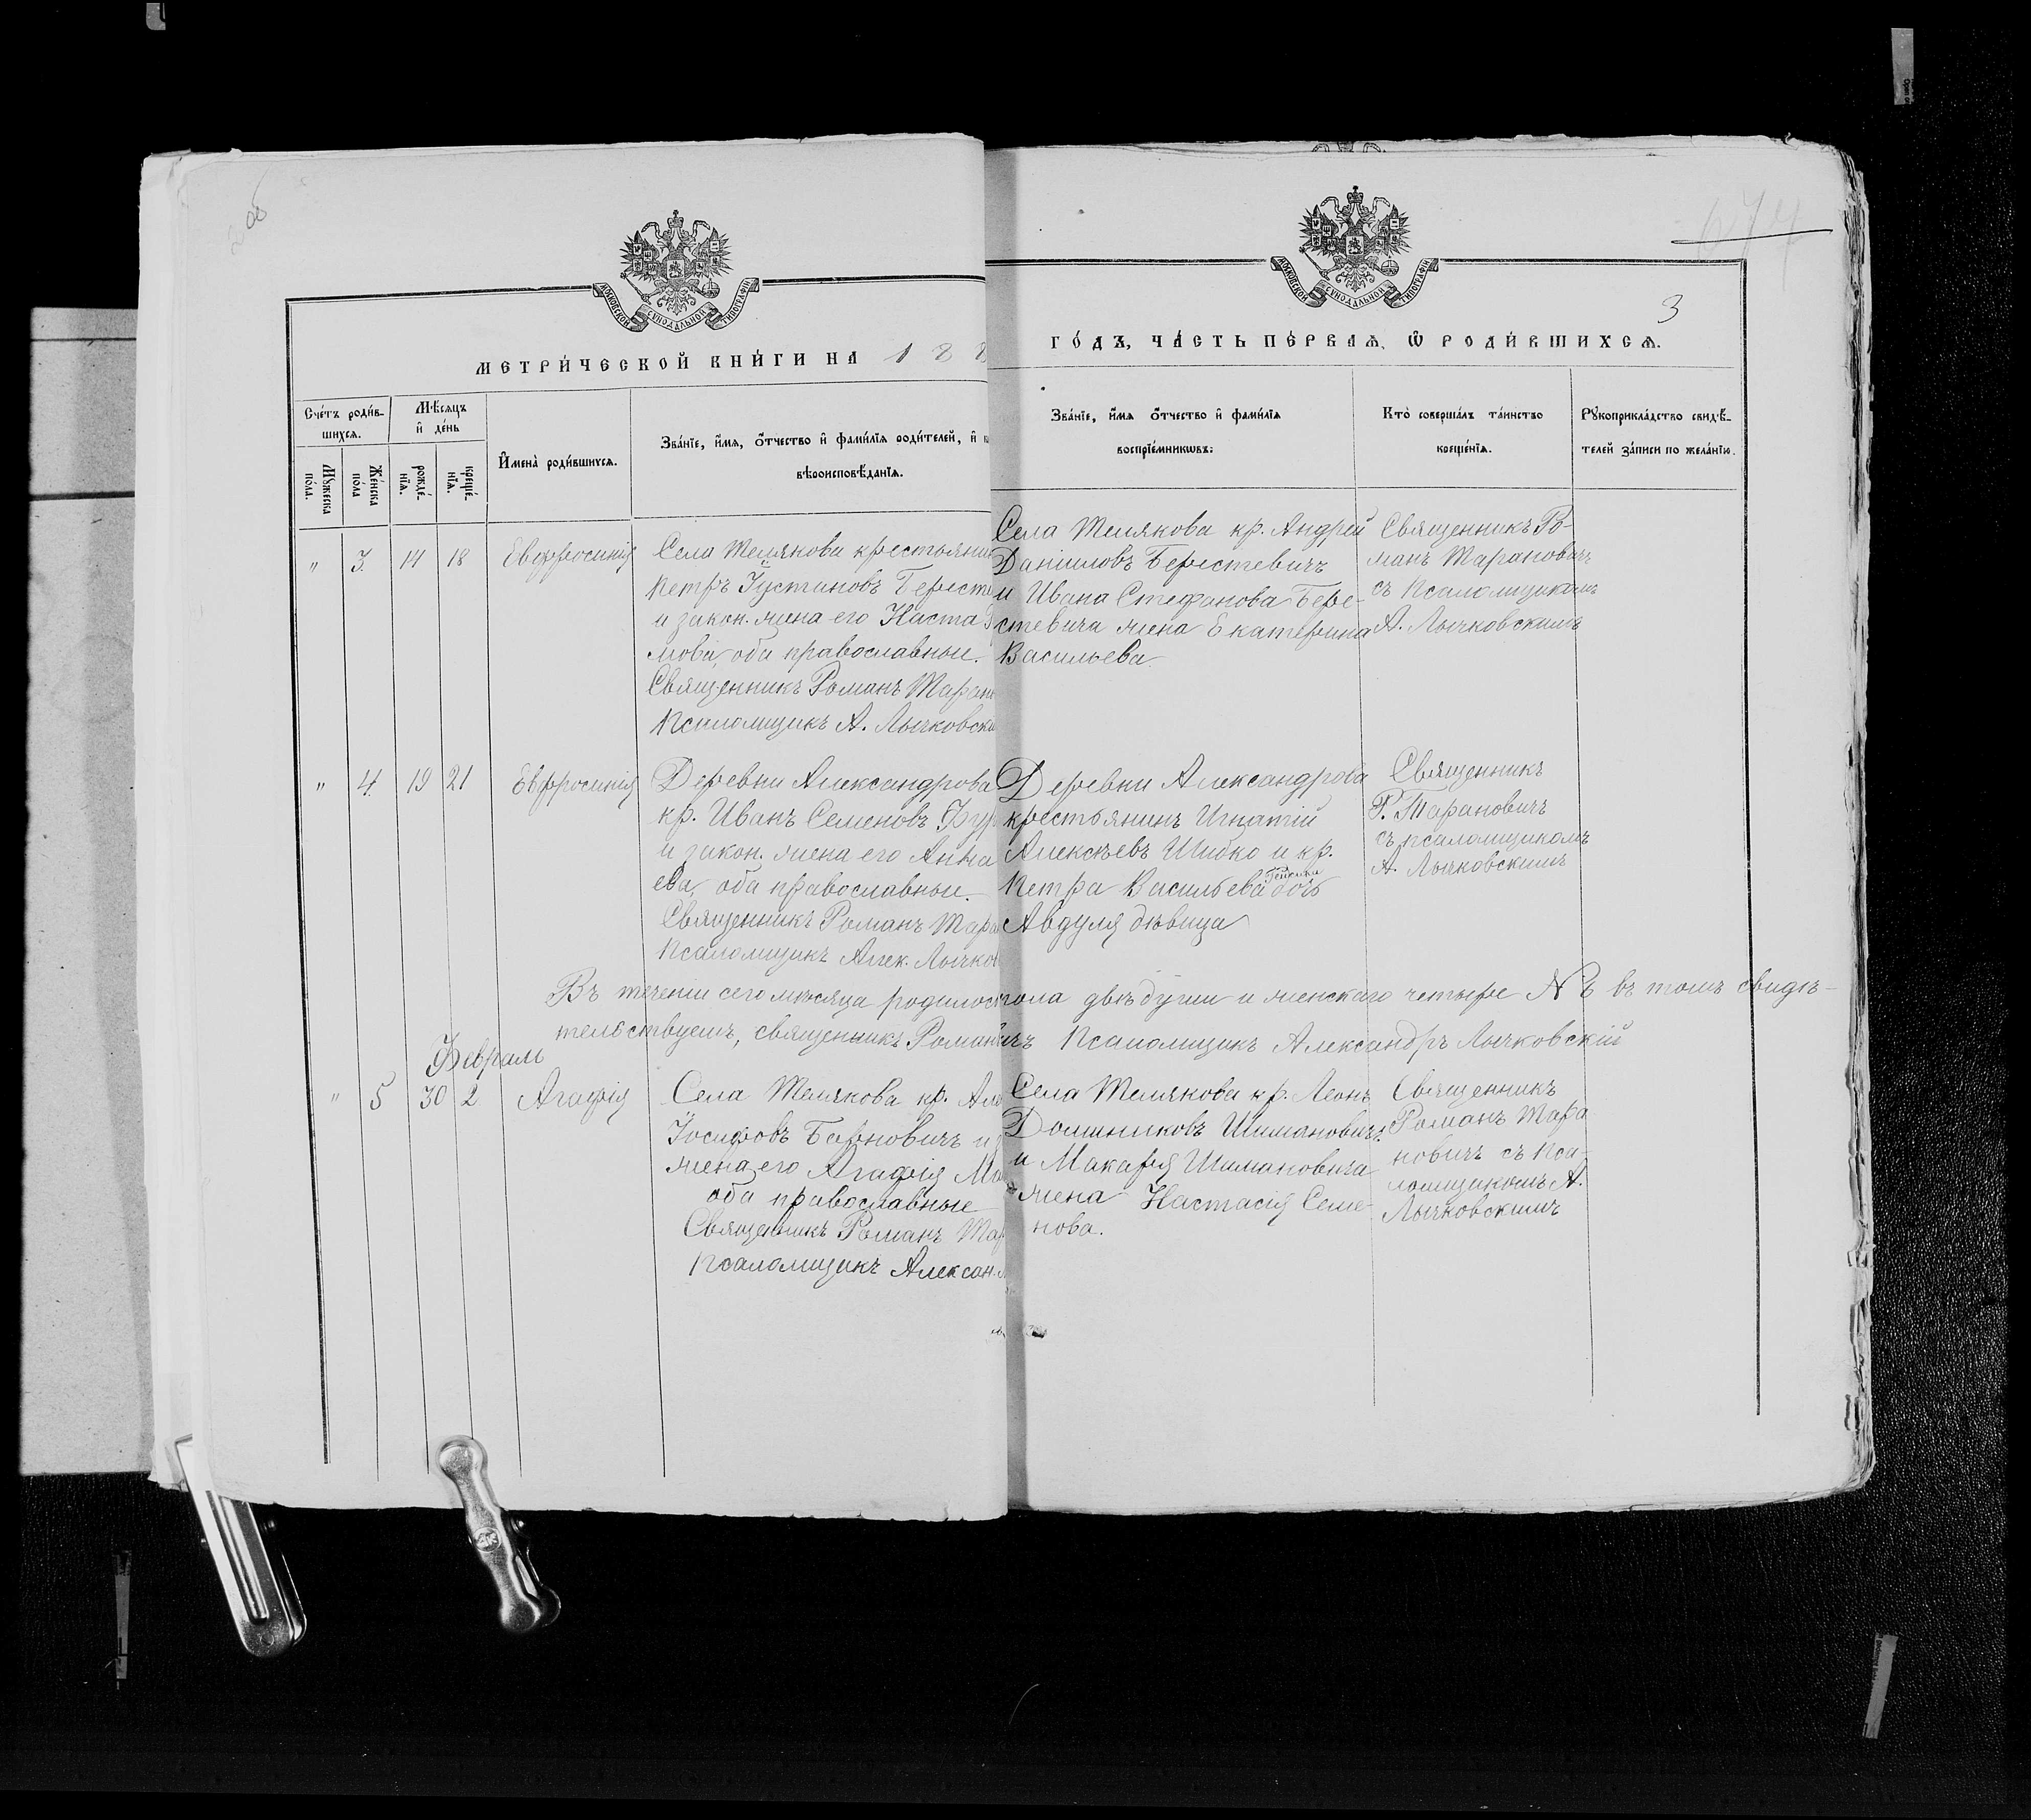 3
МОСКОВСКОЙ СѴНОДАЛЬНОЙ ТИПОГРАФІИ
МОСКОВСКОЙ СѴНОДАЛЬНОЙ ТИПОГРАФІИ
МЕТРИ́ЧЕСКОЙ КНИ́ГИ НА 188
ГО́ДЪ, ЧА́СТЬ ПЕ́РВАѦ, Ѽ РОДИ́ВШИХСѦ.
Сче́тъ роди́в-
шихсѧ.
Мѣ́сѧцъ
и҆ де́нь
Мꙋ́жеска
по́ла.
Же́нска
по́ла
рожде́-
нїѧ.
креще́-
нїѧ.
И҆мена̀ роди́вшихсѧ.
Зва́нїе, и҆́мѧ, ѻ҆́тчество и҆ фами́лїѧ роди́телей, и҆
вѣроисповѣ́данїѧ.
Зва́нїе, и҆́мѧ ѻ҆́тчество и҆ фами́лїѧ
воспрїе́мникѡвъ.
Кто̀ соверша́лъ та́инство
креще́нїѧ.
Рꙋкоприкла́дство свидѣ́-
телей за́писи по жела́нїю.
" 3. 14 18 Евфросинія
Села Телякова крестьянин
Петръ Іустиновъ Бересте
и закон. жена его Наста
мова, оба православные.
Священникъ Романъ Таран
Псаломщикъ А. Лычковски
Села Телякова кр. Андрей
Даніиловъ Берестевичъ
и Ивана Стефанова Бере-
стевича жена Екатерина
Васильева.
Священникъ Ро-
манъ Тарановичъ
съ псаломщикомъ
А. Лычковскимъ
" 4. 19 21 Евфросинія
Деревни Александрова
кр. Иванъ Семеновъ
и закон. жена его Анна
ева, оба православные.
Священникъ Романъ Тара
Псаломщикъ Алек. Лычков
Деревни Александрова
крестьянинъ Игнатій
Алексѣевъ Шибко и кр.
Петра Васильева дочь
Авдуля дѣвица
Священникъ
Р. Тарановичъ
съ псаломщикомъ
А. Лычковскимъ
Въ теченіи сего мѣсяца родилось пола двѣ души и женскаго четыре въ томъ свидѣ-
тельствуемъ, священникъ Романъ ичъ Псаломщикъ Александръ Лычковскій
Февраль
" 5 30 2 Агафія
Села Телякова кр. Але
Іосифовъ Борновичъ и з
жена его Агафія Ма
оба православные
Священникъ Романъ Тар
Псаломщикъ Алексан.
Села Телякова кр. Леонъ
Доминиковъ Шимановичъ
и Макарія Шимановича
жена Настасія Семе-
нова.
Священникъ
Романъ Тара
новичъ съ пса-
ломщикомъ А.
Лычковскимъ